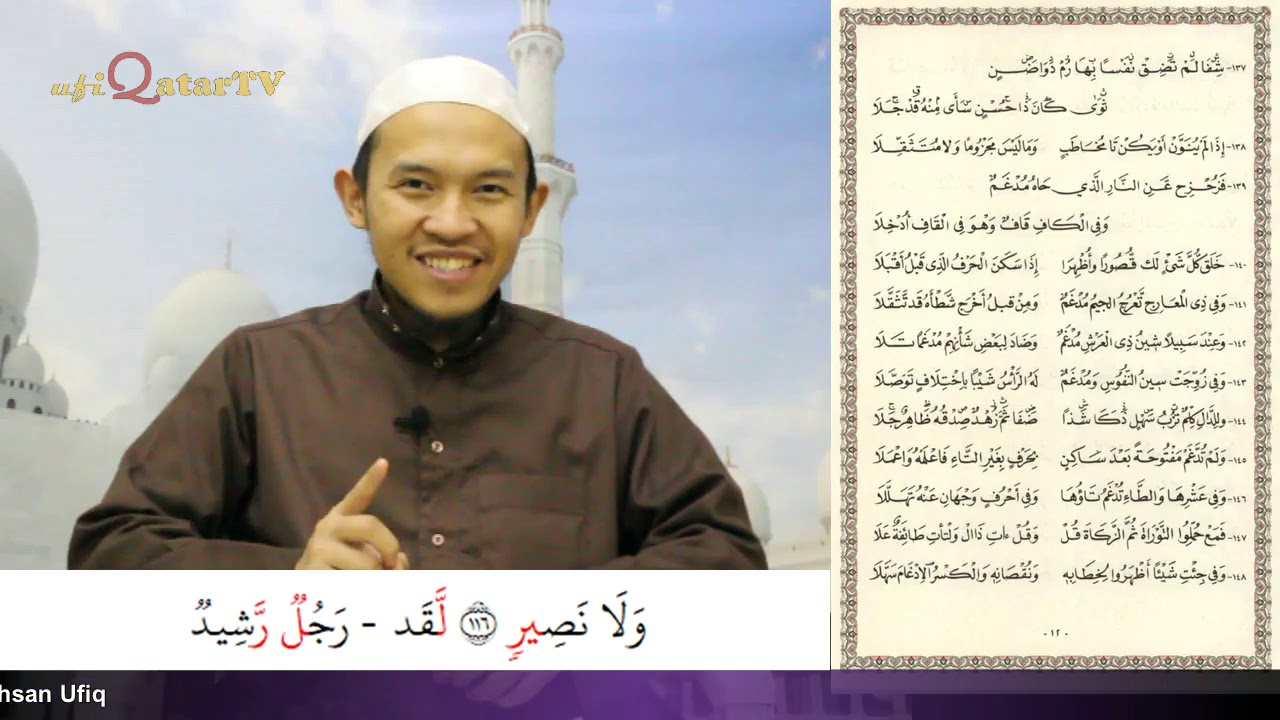 ufiQatarTV
١٣٧- شِفَا لَمْ تَضِقْ نَفْسًا بِهَا رُمْ دَوَاضَنٍ
ثَوَى كَانَ ذَا حُسْنٍ سَأَى مِنْهُ قَدْ جَلَا
١٣٨- إِذَا لَمْ يُنَوَّنْ أَوْ يَكُنْ تَا مُخَاطَبٍ وَمَا لَيْسَ مَجْزُومًا وَلَا مُتَثَقِّلَا
١٣٩- فَزُحْزِحَ عَنِ النَّارِ الَّذِي حَاهُ مُدْغَمٌ
وَفِي الْكَافِ قَافٌ وَهْوَ فِي الْقَافِ أُدْخِلَا
١٤٠- خَلَقَ كُلَّ شَيْءٍ لَكَ قُصُورًا وَأُظْهِرَا إِذَا سَكَنَ الْحَرْفُ الَّذِي قَبْلُ أَقْبَلَا
١٤١- وَفِي ذِي الْمَعَارِجِ تَعْرُجُ الْجِيمُ مُدْغَمٌ وَمِنْ قَبْلُ أَخْرَجَ شَطْأَهُ قَدْ تَثَقَّلَا
١٤٢- وَعِنْدَ سَبِيلًا شِينُ ذِي الْعَرْشِ مُدْغَمٌ وَضَادَ لِبَعْضِ شَأْنِهِمْ مُدْغَمًا تَلَا
١٤٣- وَفِي زُوِّجَتْ سِينُ النُّفُوسِ وَمُدْغَمٌ لَهُ الرَّأْسُ شَيْبًا بِاخْتِلَافٍ تَوَصَّلَا
١٤٤- وَلِلدَّالِ كِلْمٌ تُرْبُ سَهْلٍ ذَكَا شَذًا ضَفَا ثَمَّ زُهْدٌ صِدْقُهُ ظَاهِرٌ جَلَا
١٤٥- وَلَمْ تُدَّغَمْ مَفْتُوحَةً بَعْدَ سَاكِنٍ بِحَرْفٍ بِغَيْرِ التَّاءِ فَاعْلَمْهُ وَاعْمَلَا
١٤٦- وَفِي عَشْرِهَا وَالطَّاءِ تُدْغَمُ تَاؤُهَا وَفِي أَحْرُفٍ وَجْهَانِ عَنْهُ تَهَلَّلَا
١٤٧- فَمَعْ حُمِّلُوا التَّوْرَاةَ ثُمَّ الزَّكَاةَ قُلْ وَقُلْ ءَاتِ ذَا الْ وَلْتَأْتِ طَائِفَةٌ عَلَا
١٤٨- وَفِي جِئْتِ شَيْئًا أَظْهَرُوا لِخِطَابِهِ وَنُقْصَانِهِ وَالْكَسْرُ الِادْغَامَ سَهَّلَا
-١٢-
وَلَا نَصِيرٍ ١١٦ لَّقَد - رَجُلٌ رَّشِيدٌ
hsan Ufiq